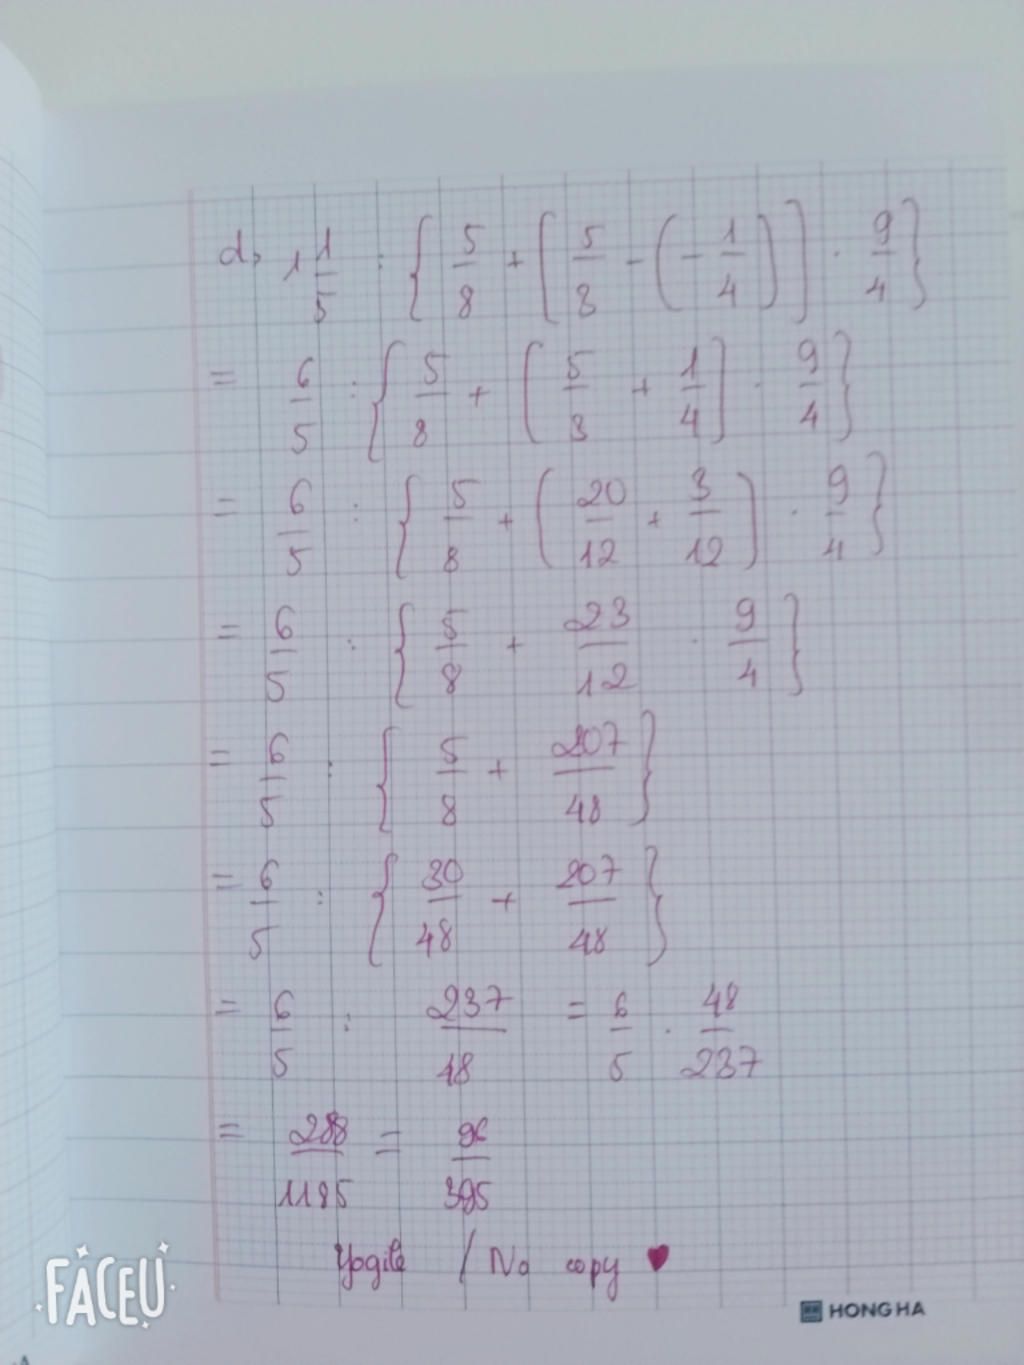 d, 1 1/5 : { 5/8 + [ 5/3 - ( - 1/4 ) ] . 9/4 }
= 6/5 : { 5/8 + [ 5/3 + 1/4 ] . 9/4 }
= 6/5 : { 5/8 + ( 20/12 + 3/12 ) . 9/4 }
= 6/5 : { 5/8 + 23/12 . 9/4 }
= 6/5 : { 5/8 + 207/48 }
= 6/5 : { 30/48 + 207/48 }
= 6/5 : 237/48 = 6/5 . 48/237
= 288/1185 = 96/395
/ No copy ♥
FACEU
HONG HA